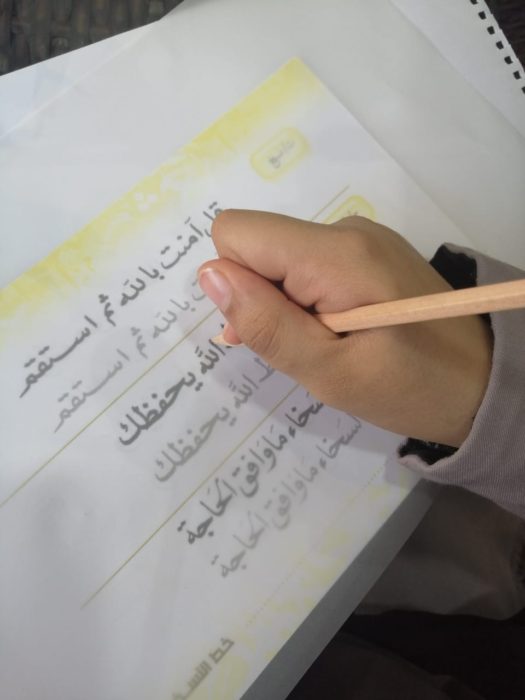 تابع
قل آمنت بالله ثم استقم
بالله ثم استقم
الله يحفظك
الله يحفظك
السخاء مَاوَافق الحَاجة
السخاء مَاوَافق الحَاجة
خط النسخ